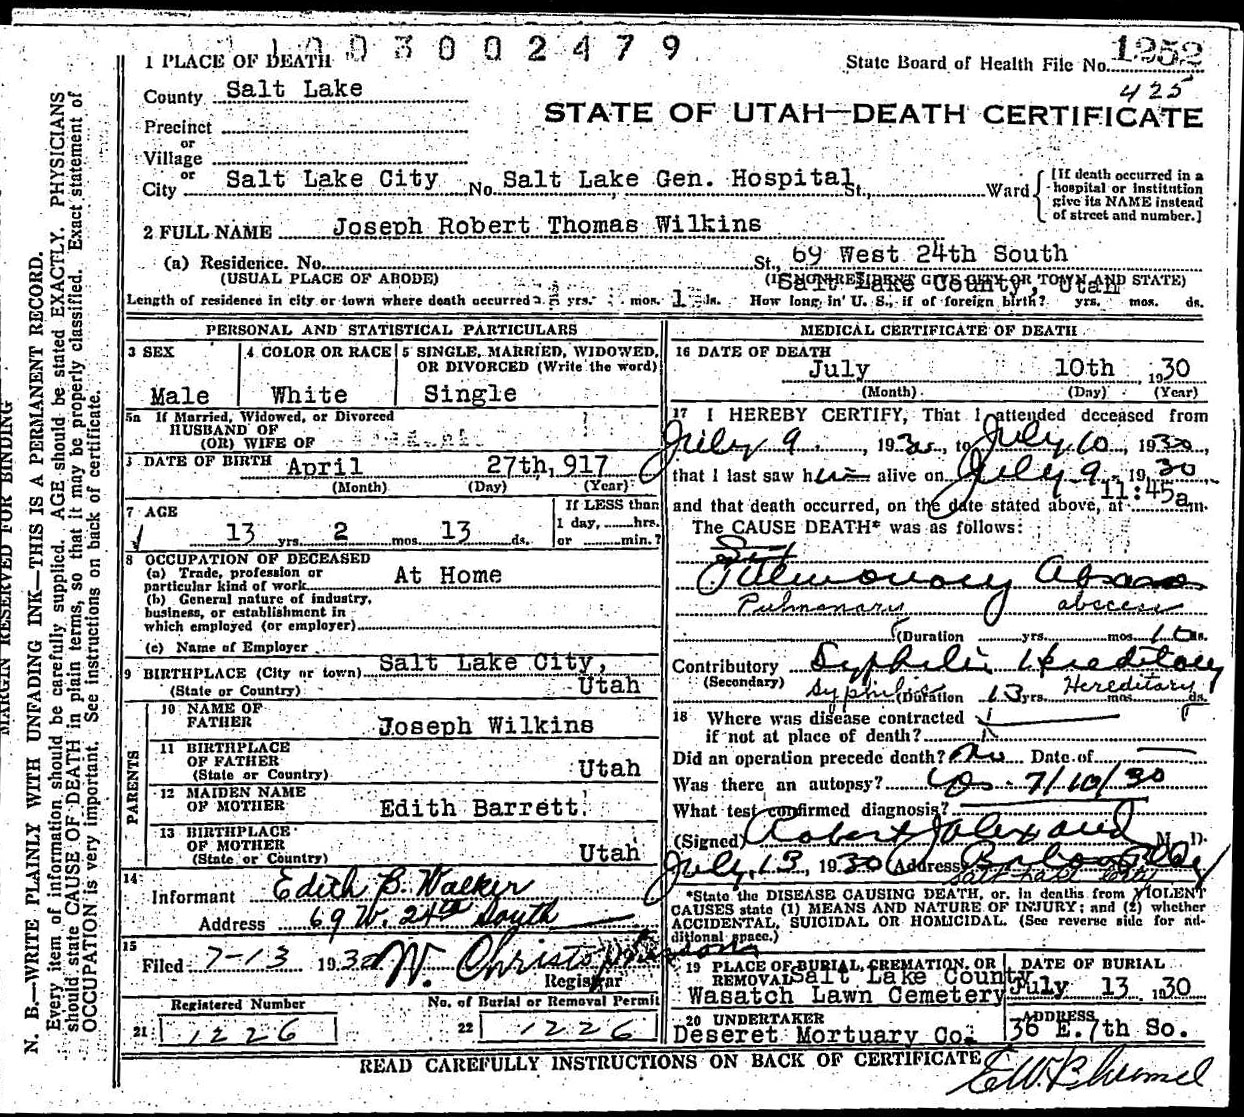 1003002479
1 PLACE OF DEATH
State Board of Health File No. 1252
425
County Salt Lake
STATE OF UTAH—DEATH CERTIFICATE
Precinct
or
Village
or
City Salt Lake City No. Salt Lake Gen. Hospital St., Ward
[If death occurred in a hospital or institution give its NAME instead of street and number.]
2 FULL NAME Joseph Robert Thomas Wilkins
(a) Residence. No. St., 69 West 24th South
(USUAL PLACE OF ABODE) (IF NONRESIDENT GIVE CITY OR TOWN AND STATE)
Salt Lake County, Utah
Length of residence in city or town where death occurred yrs. mos. 1 ds. How long in U. S., if of foreign birth? yrs. mos. ds.
PERSONAL AND STATISTICAL PARTICULARS
3 SEX
Male
4 COLOR OR RACE
White
5 SINGLE, MARRIED, WIDOWED,
OR DIVORCED (Write the word)
Single
5a If Married, Widowed, or Divorced
HUSBAND OF
(OR) WIFE OF
DATE OF BIRTH April 27th, 917
(Month) (Day) (Year)
7 AGE
13 yrs. 2 mos. 13 ds.
If LESS than
1 day, hrs.
or min.?
8 OCCUPATION OF DECEASED
(a) Trade, profession or
particular kind of work At Home
(b) General nature of industry,
business, or establishment in
which employed (or employer)
(c) Name of Employer
9 BIRTHPLACE (City or town) Salt Lake City,
(State or Country) Utah
PARENTS
10 NAME OF
FATHER Joseph Wilkins
11 BIRTHPLACE
OF FATHER
(State or Country) Utah
12 MAIDEN NAME
OF MOTHER Edith Barrett
13 BIRTHPLACE
OF MOTHER
(State or Country) Utah
14
Informant Edith B. Walker
Address 69 W. 24th South
15
Filed 7-13 1930 W. Christopherson
Registrar
Registered Number
21 1226
No. of Burial or Removal Permit
22 1226
MEDICAL CERTIFICATE OF DEATH
16 DATE OF DEATH
July 10th, 1930
(Month) (Day) (Year)
17 I HEREBY CERTIFY, That I attended deceased from
July 9, 1930, to July 10, 1930
that I last saw him alive on July 9, 1930
and that death occurred, on the date stated above, at 11:45a m.
The CAUSE DEATH* was as follows:
Pulmonary Abscess
Pulmonary abcess
(Duration yrs. mos. 10 ds.
Contributory Syphilis Hereditary
(Secondary) Syphilis Hereditary
(Duration 13 yrs. mos. ds.
18 Where was disease contracted
if not at place of death?
Did an operation precede death? No Date of
Was there an autopsy? Yes 7/10/30
What test confirmed diagnosis?
(Signed) Robert J Alexander M. D.
July 13, 1930 (Address)
Salt Lake City
*State the DISEASE CAUSING DEATH, or, in deaths from VIOLENT
CAUSES state (1) MEANS AND NATURE OF INJURY; and (2) whether
ACCIDENTAL, SUICIDAL OR HOMICIDAL. (See reverse side for ad-
ditional space.)
19 PLACE OF BURIAL, CREMATION, OR
REMOVAL Salt Lake County
Wasatch Lawn Cemetery
DATE OF BURIAL
July 13 1930
20 UNDERTAKER
Deseret Mortuary Co.
ADDRESS
36 E. 7th So.
READ CAREFULLY INSTRUCTIONS ON BACK OF CERTIFICATE
MARGIN RESERVED FOR BINDING
N. B.—WRITE PLAINLY WITH UNFADING INK—THIS IS A PERMANENT RECORD.
Every item of information should be carefully supplied. AGE should be stated EXACTLY. PHYSICIANS
should state CAUSE OF DEATH in plain terms, so that it may be properly classified. Exact statement of
OCCUPATION is very important. See instructions on back of certificate.